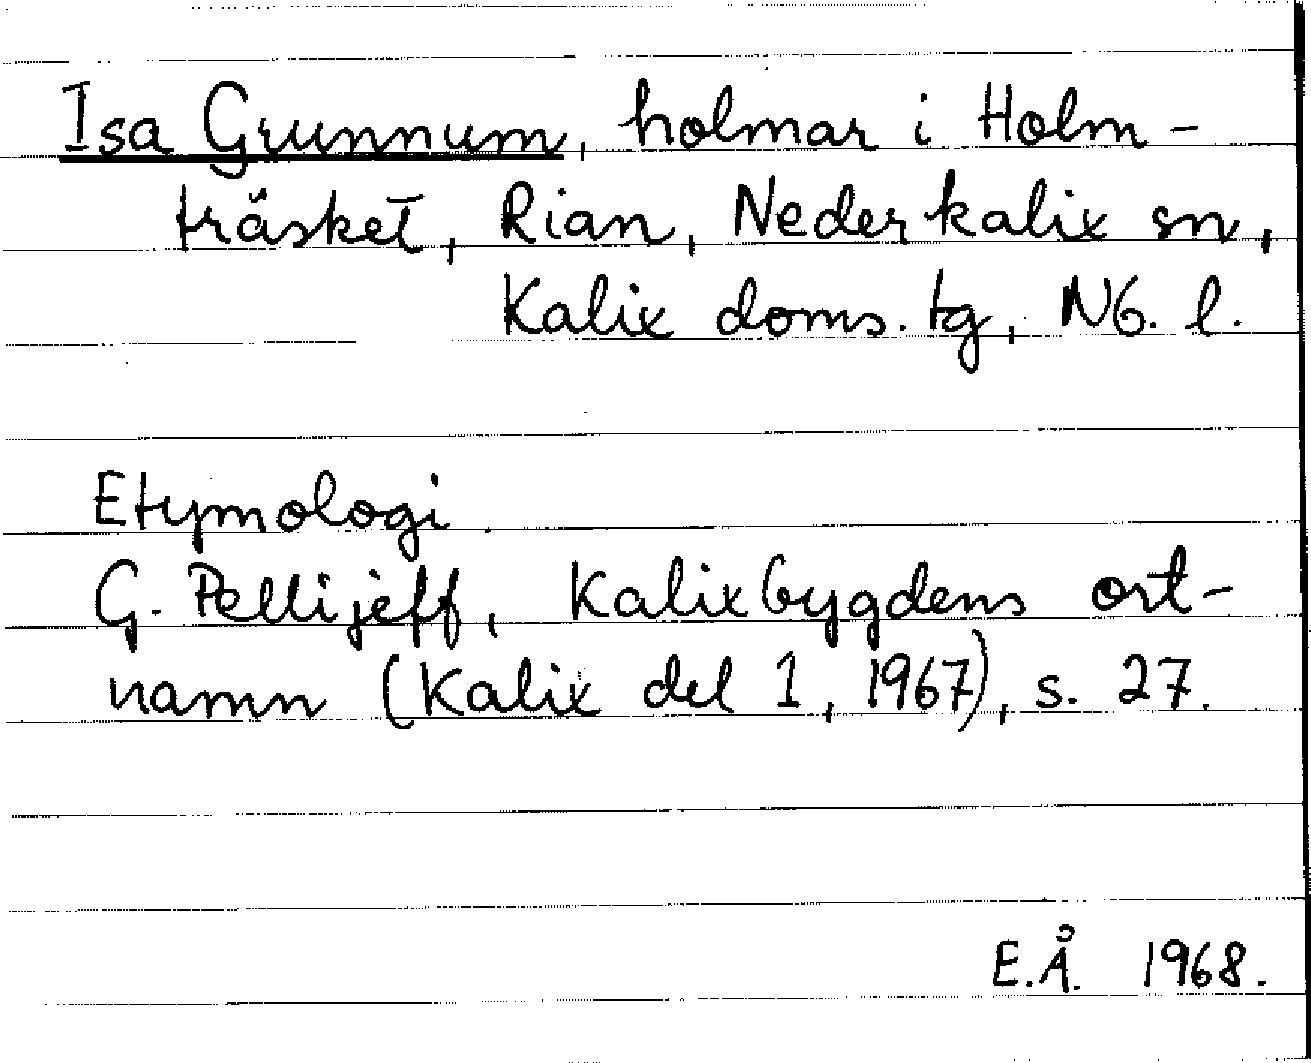 Isa Grunnum, holmar i Holm-
träsket, Rian, Nederkalix sn,
Kalix doms. tg, Nb. l.
Etymologi.
G. Pellijeff, Kalixbygdens ort-
namn (Kalix del 1, 1967), s. 27.
E.Å. 1968.